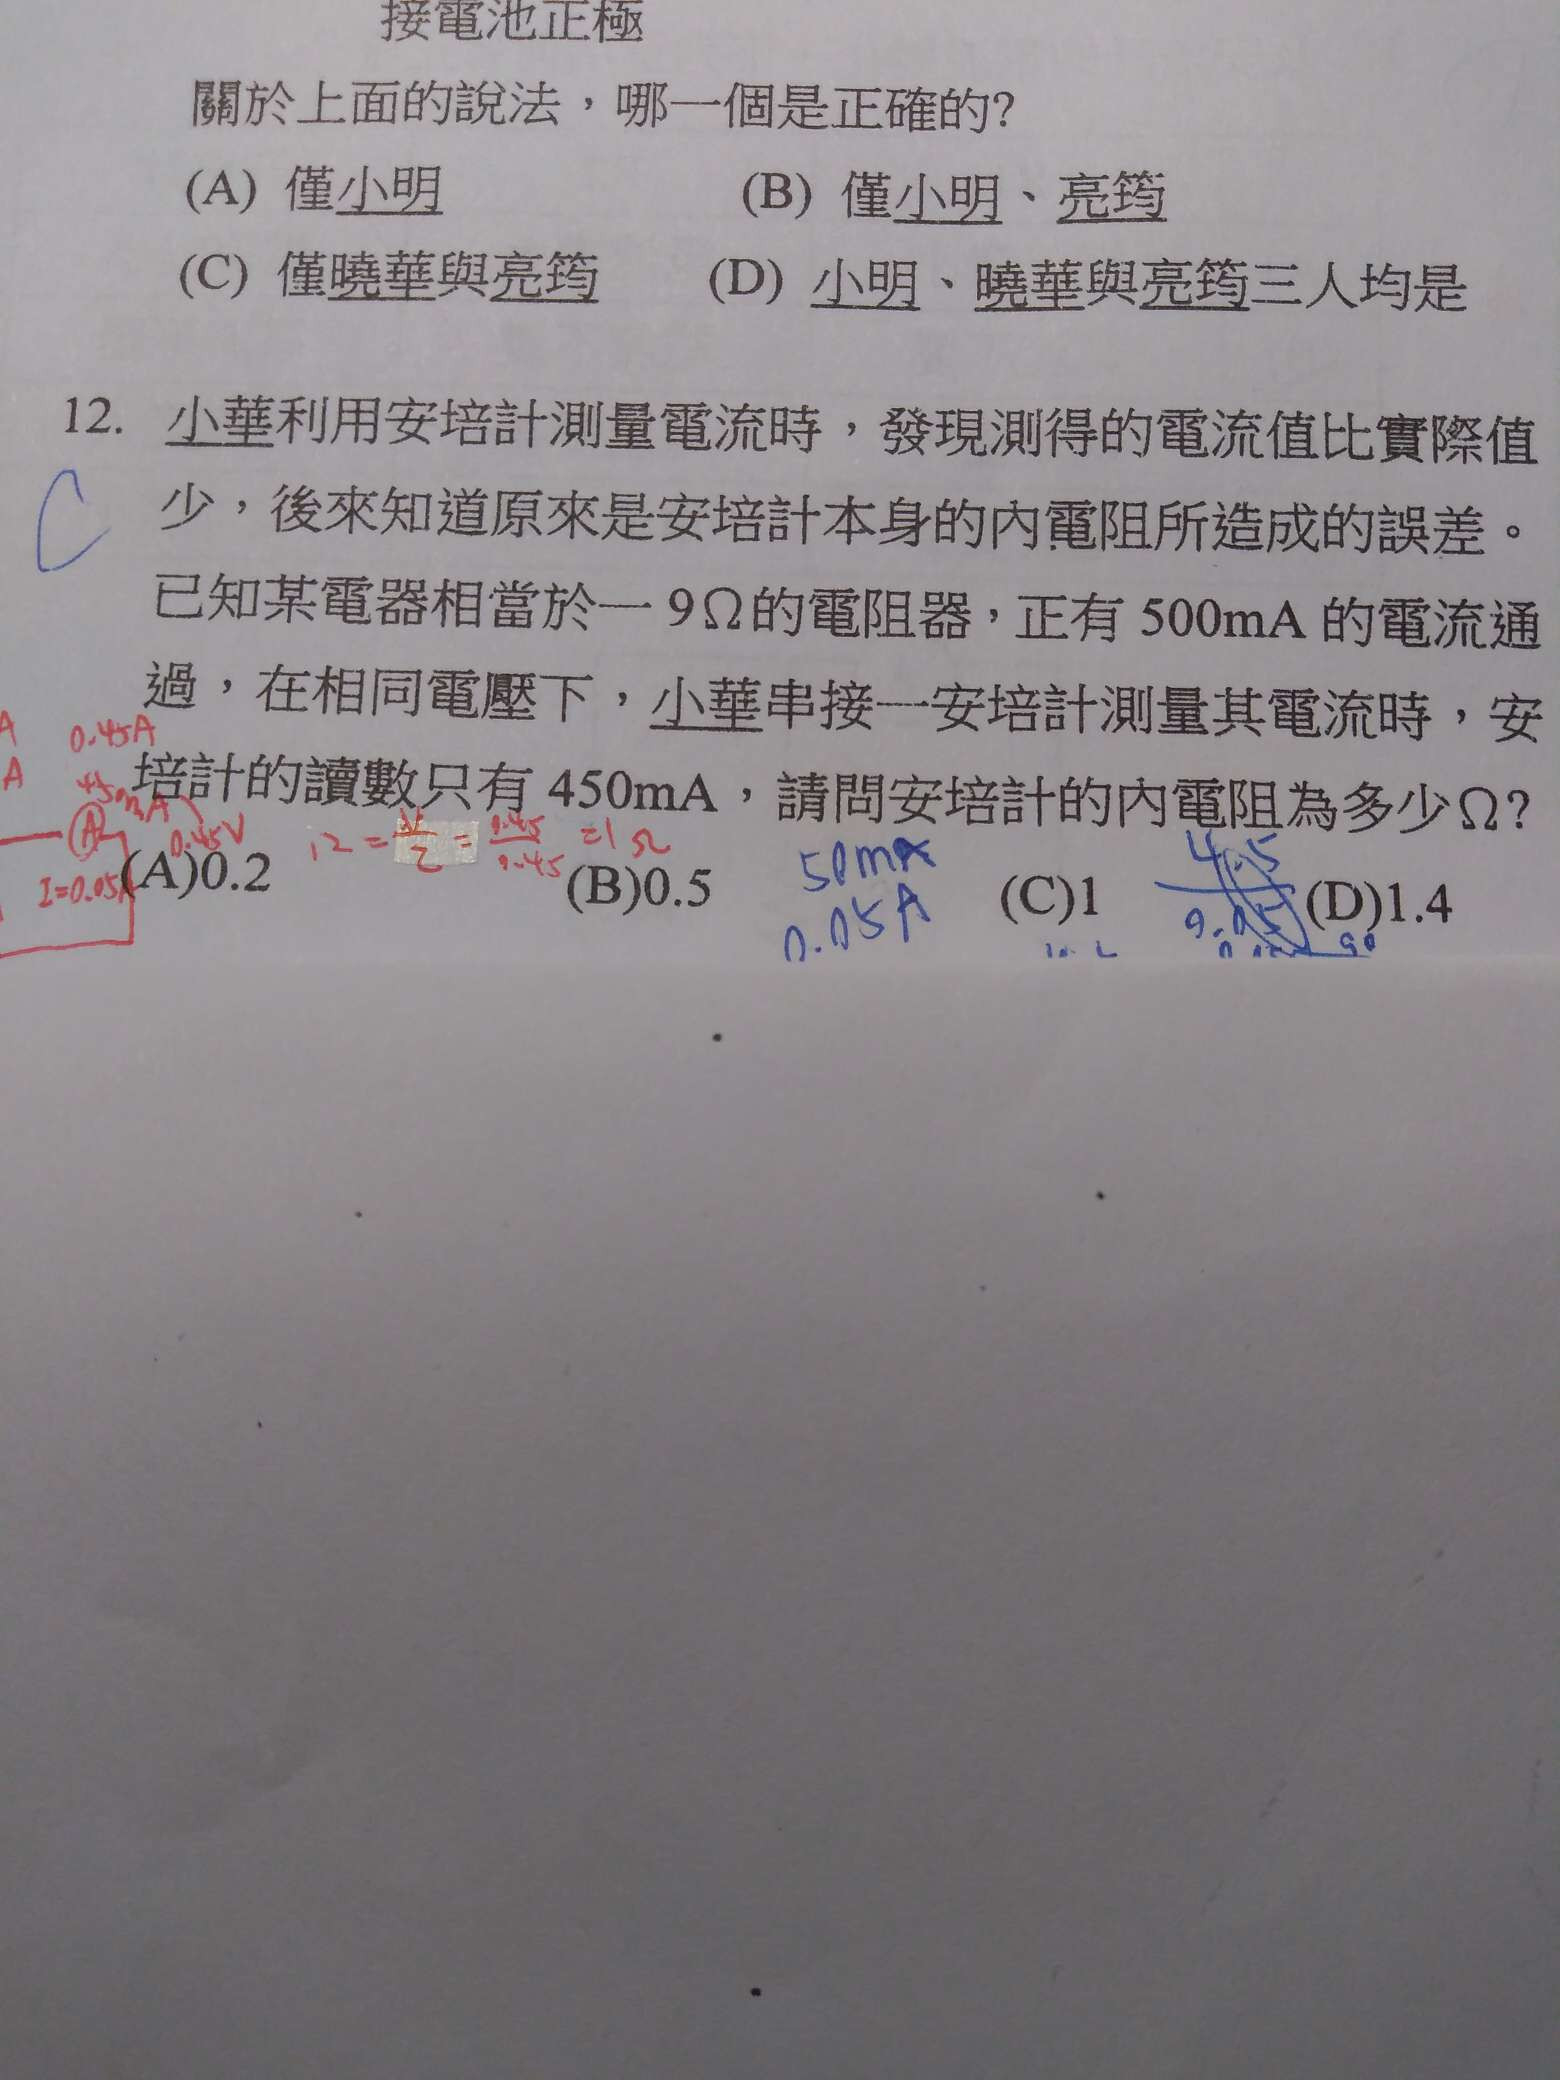 接電池正極
關於上面的說法，哪一個是正確的?
(A) 僅小明 (B) 僅小明、亮筠
(C) 僅曉華與亮筠 (D) 小明、曉華與亮筠三人均是
12. 小華利用安培計測量電流時，發現測得的電流值比實際值
C 少，後來知道原來是安培計本身的內電阻所造成的誤差。
已知某電器相當於一9Ω的電阻器，正有500mA的電流通
過，在相同電壓下，小華串接一安培計測量其電流時，安
A 0.45A
培計的讀數只有450mA，請問安培計的內電阻為多少Ω?
A 45mA
A 0.45V R = V/I = 0.45/0.45 = 1Ω 50mA 4.5
I=0.05A (A)0.2 (B)0.5 0.05A (C)1 9.05 (D)1.4